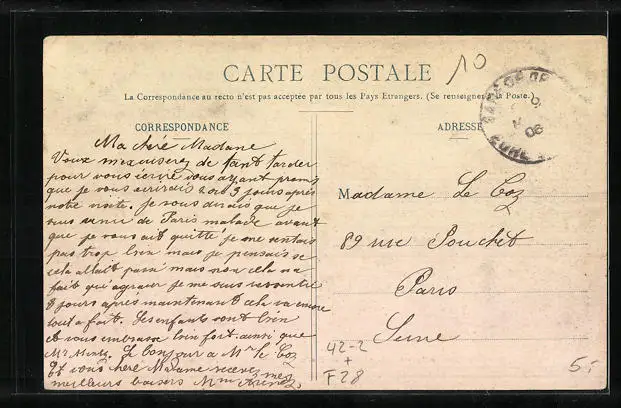 CARTE POSTALE
10
La Correspondance au recto n'est pas acceptée par tous les Pays Etrangers. (Se renseigner à la Poste.)
CORRESPONDANCE
ADRESSE
EURE
06
Ma chéré Madame
Vous m'excuserez de tant tarder
pour vous écrire vous ayant promis
que je vous écrirais 2 ou 3 jours après
notre visite. Je vous dirais que je
suis venue de Paris malade avant
que je vous ait quitté je me sentais
pas trop bien mais je pensais se
cela allait passé mais non cela n'a
fait qu'agraver je me suis
8 jours après maintenant cela va
tout a fait. Les enfants vont bien
et vous embrasse bien fort ainsi que
Mr Le bonjour a Mr le Coz
Et vous chéré Madame recevez mes
meilleurs baisers Mme
Madame Le Coz
89 rue Pouchet
Paris
Seine
42-2
+
F28
5.-